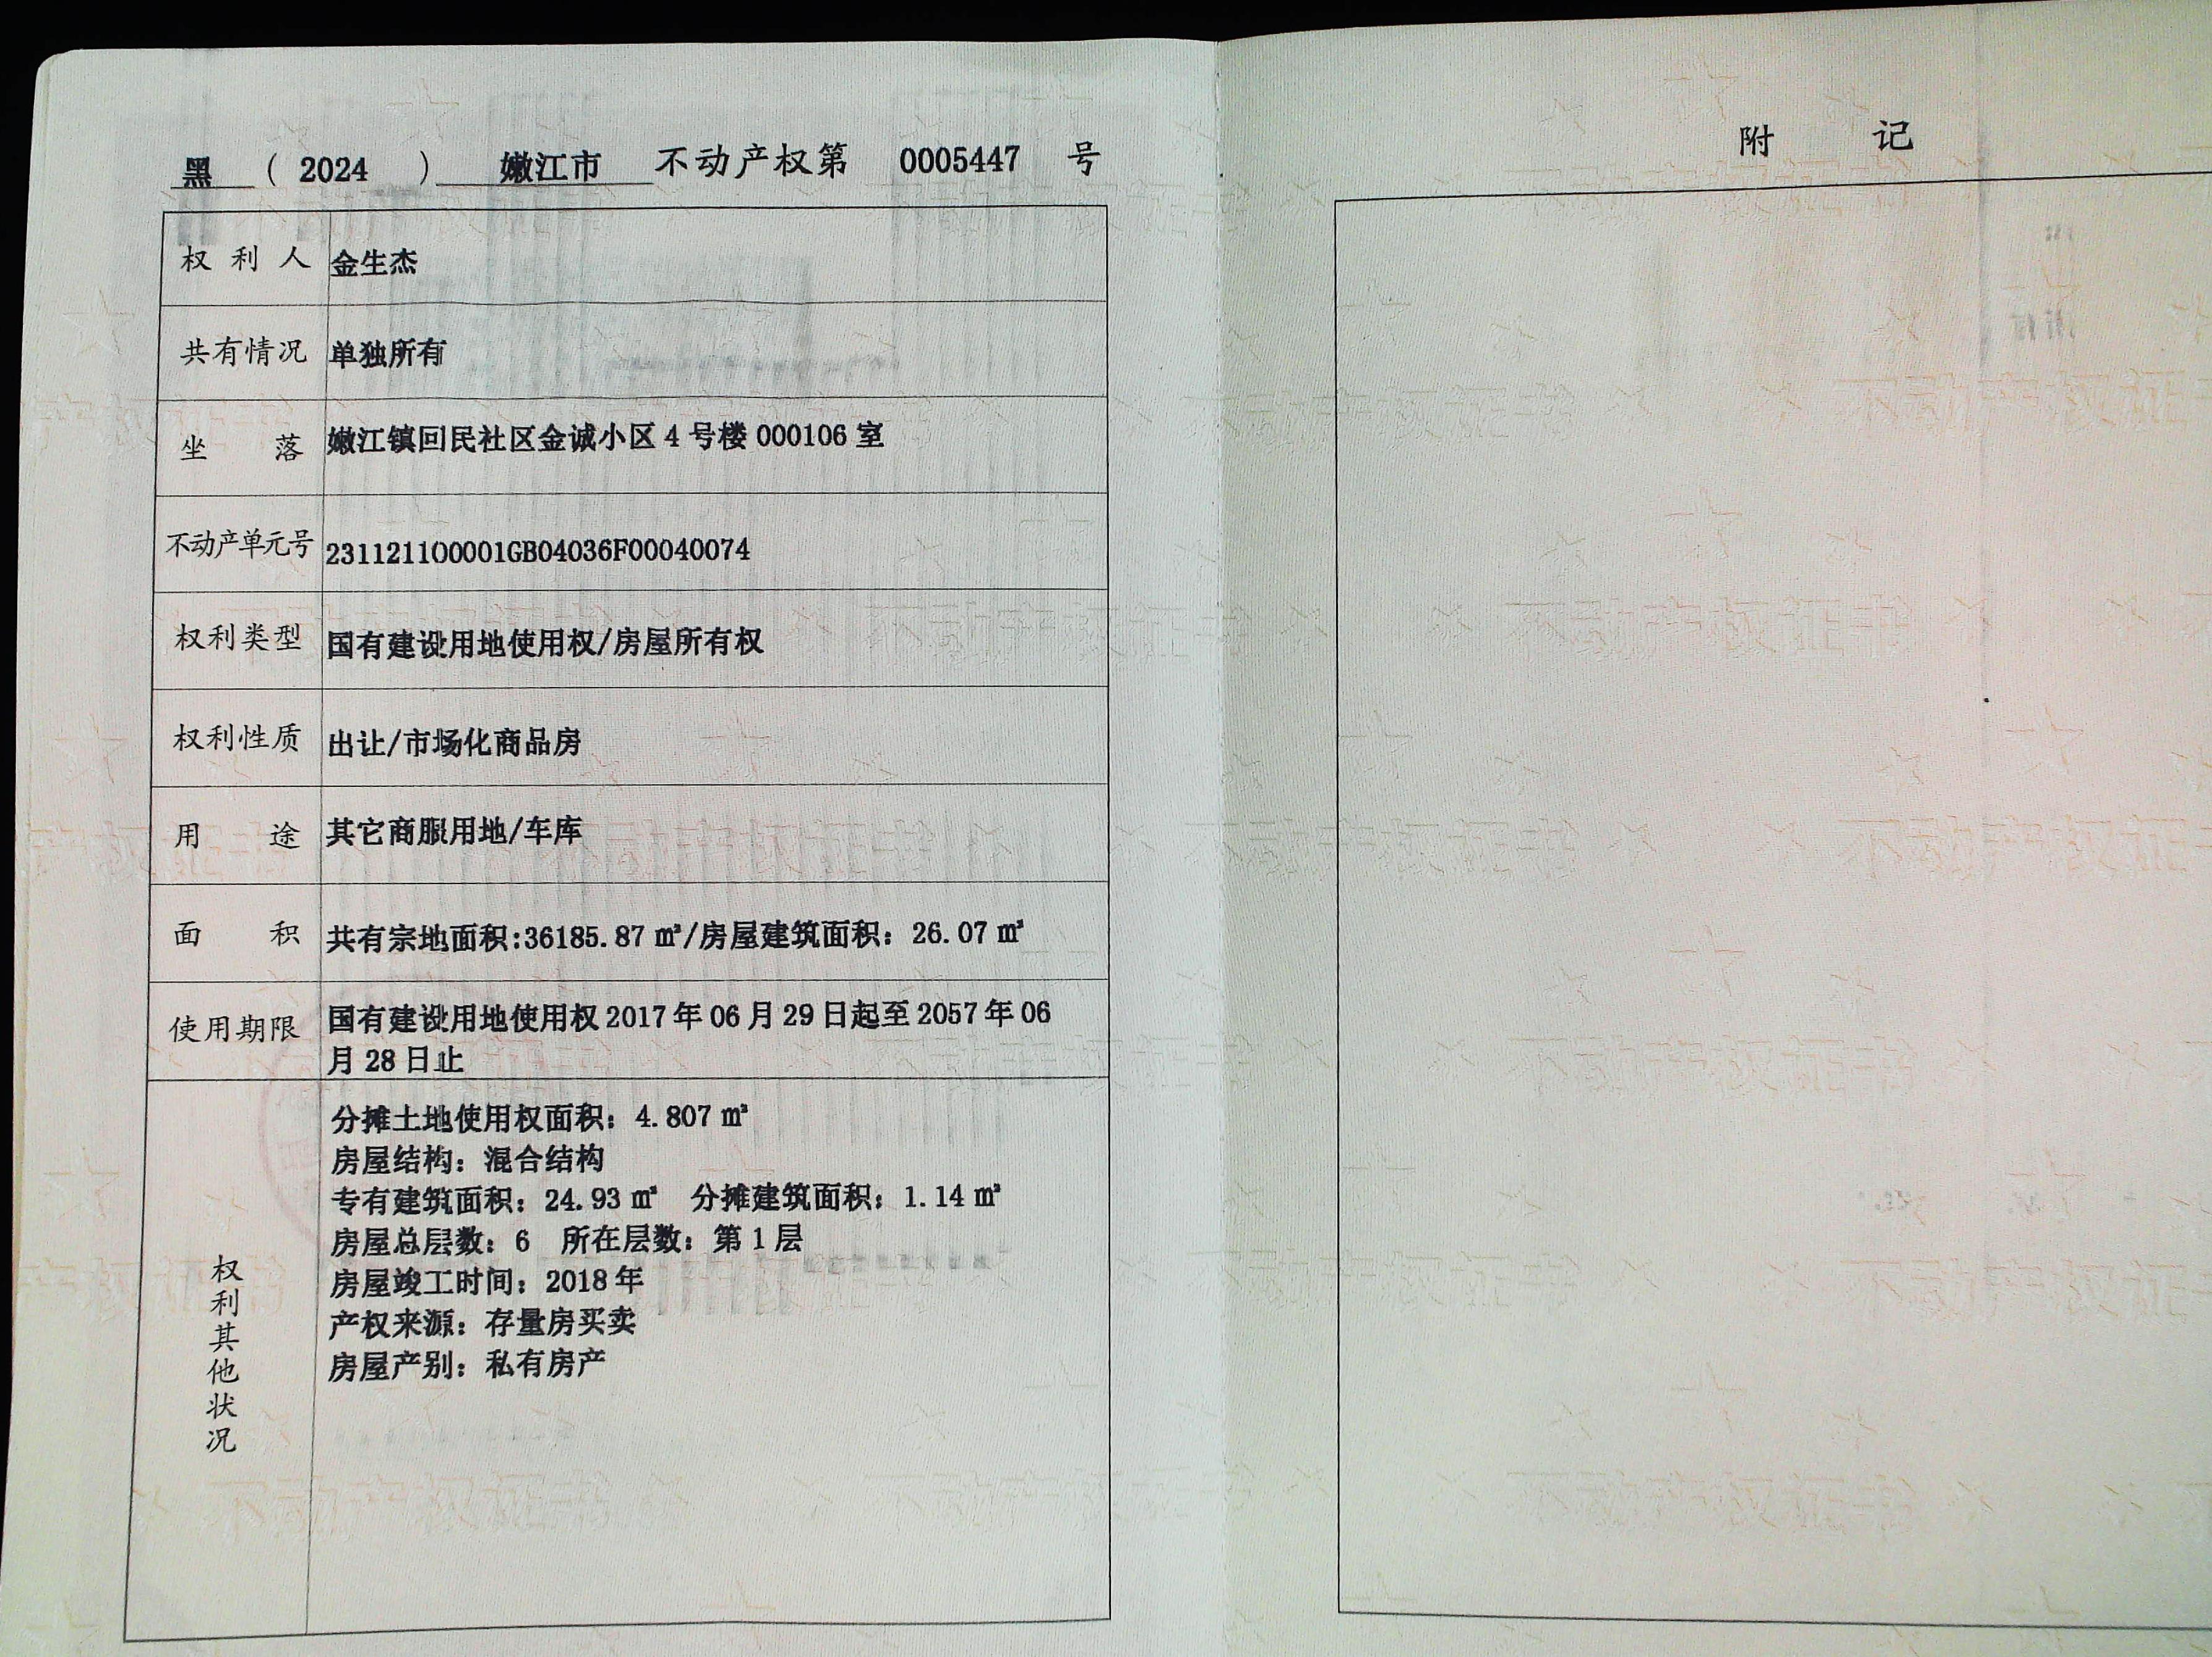 黑 ( 2024 ) 嫩江市 不动产权第 0005447 号
权利人 金生杰
共有情况 单独所有
坐落 嫩江镇回民社区金诚小区4号楼000106室
不动产单元号 231121100001GB04036F00040074
权利类型 国有建设用地使用权/房屋所有权
权利性质 出让/市场化商品房
用途 其它商服用地/车库
面积 共有宗地面积:36185.87㎡/房屋建筑面积：26.07㎡
使用期限 国有建设用地使用权2017年06月29日起至2057年06
月28日止
权利其他状况
分摊土地使用权面积：4.807㎡
房屋结构：混合结构
专有建筑面积：24.93㎡ 分摊建筑面积：1.14㎡
房屋总层数：6 所在层数：第1层
房屋竣工时间：2018年
产权来源：存量房买卖
房屋产别：私有房产
附记